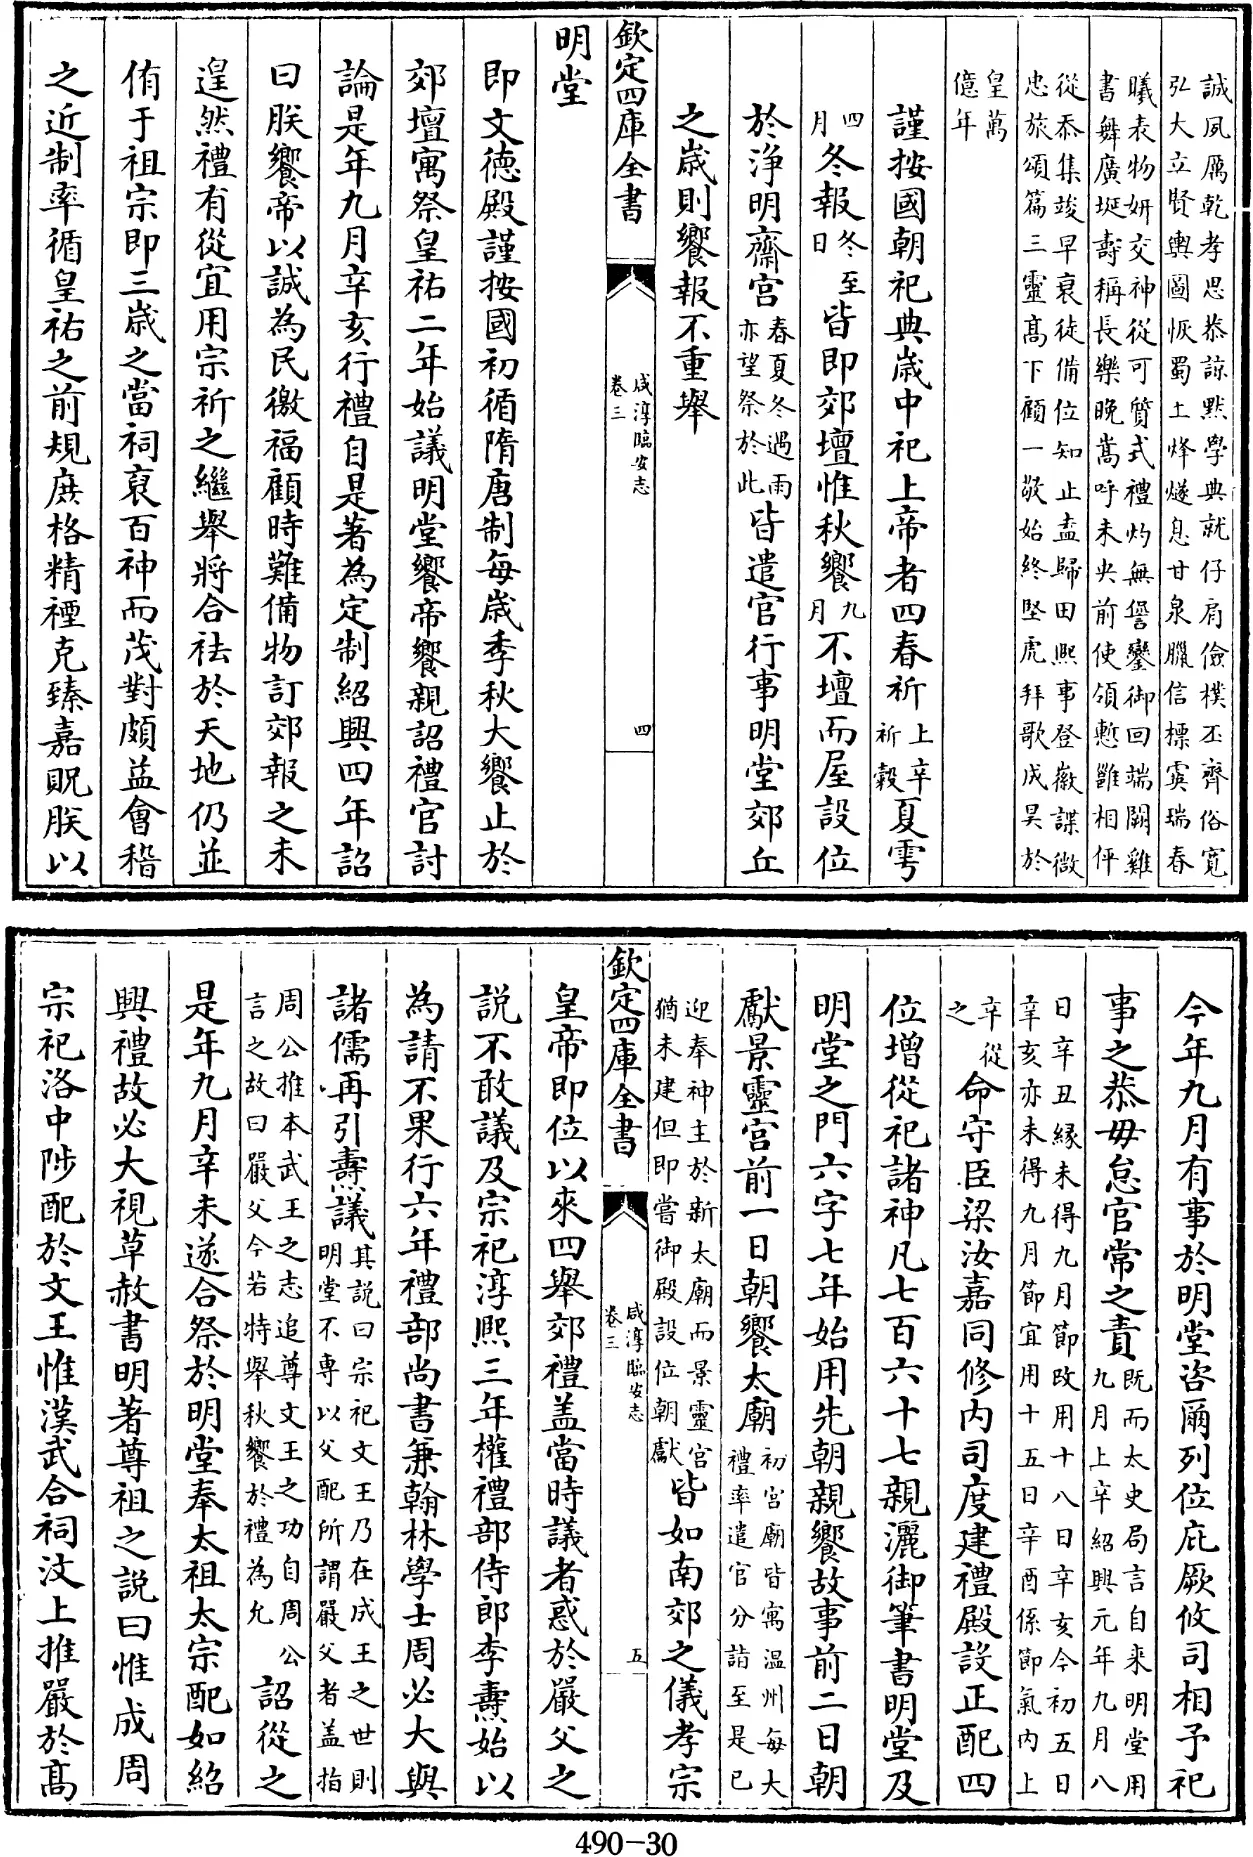 誠夙厲乾孝思恭諒黙學典就仔肩儉樸丕齊俗寛
弘大立賢輿圖恢蜀土烽燧息甘泉臘信標霙瑞春
曦表物妍交神從可質式禮灼無諐鑾御回端闢雞
書舞廣埏壽稱長樂晩嵩呼未央前使領慙雝相伻
從忝集竣早衷徒備位知止盍歸田熈事登徽諜微
忠旅頌篇三靈髙下顧一敬始終堅虎拜歌成昊於
皇萬
億年
謹按國朝祀典歳中祀上帝者四春祈上辛祈穀夏雩
四月冬報冬至日皆即郊壇惟秋饗九月不壇而屋設位
於浄明齋宫春夏冬遇雨亦望祭於此皆遣官行事明堂郊丘
之歳則饗報不重舉
欽定四庫全書 咸淳臨安志 卷三 四
明堂
即文德殿謹按國初循隋唐制每歳季秋大饗止於
郊壇寓祭皇祐二年始議明堂饗帝饗親詔禮官討
論是年九月辛亥行禮自是著為定制紹興四年詔
曰朕饗帝以誠為民徼福顧時難備物訂郊報之未
遑然禮有從宜用宗祈之繼舉將合祛於天地仍並
侑于祖宗即三歳之當祠裒百神而茂對頗益會稽
之近制率循皇祐之前規庶格精禋克臻嘉貺朕以
今年九月有事於明堂咨爾列位庇厥攸司相予祀
事之恭毋怠官常之責既而太史局言自来明堂用九月上辛紹興元年九月八
日辛丑縁未得九月節改用十八日辛亥今初五日
辛亥亦未得九月節宜用十五日辛酉係節氣内上
辛從之命守臣梁汝嘉同修内司度建禮殿設正配四
位增從祀諸神凡七百六十七親灑御筆書明堂及
明堂之門六字七年始用先朝親饗故事前二日朝
獻景靈宫前一日朝饗太廟初宫廟皆寓温州每大禮率遣官分詣至是已
迎奉神主於新太廟而景靈宫猶未建但即嘗御殿設位朝獻皆如南郊之儀孝宗
欽定四庫全書 咸淳臨安志 卷三 五
皇帝即位以來四舉郊禮盖當時議者惑於嚴父之
説不敢議及宗祀淳熈三年權禮部侍郎李燾始以
為請不果行六年禮部尚書兼翰林學士周必大與
諸儒再引燾議其説曰宗祀文王乃在成王之世則明堂不専以父配所謂嚴父者盖指
周公推本武王之志追尊文王之功自周公言之故曰嚴父今若特舉秋饗於禮為允詔從之
是年九月辛未遂合祭於明堂奉太祖太宗配如紹
興禮故必大視草赦書明著尊祖之説曰惟成周
宗祀洛中陟配於文王惟漢武合祠汶上推嚴於髙
490-30